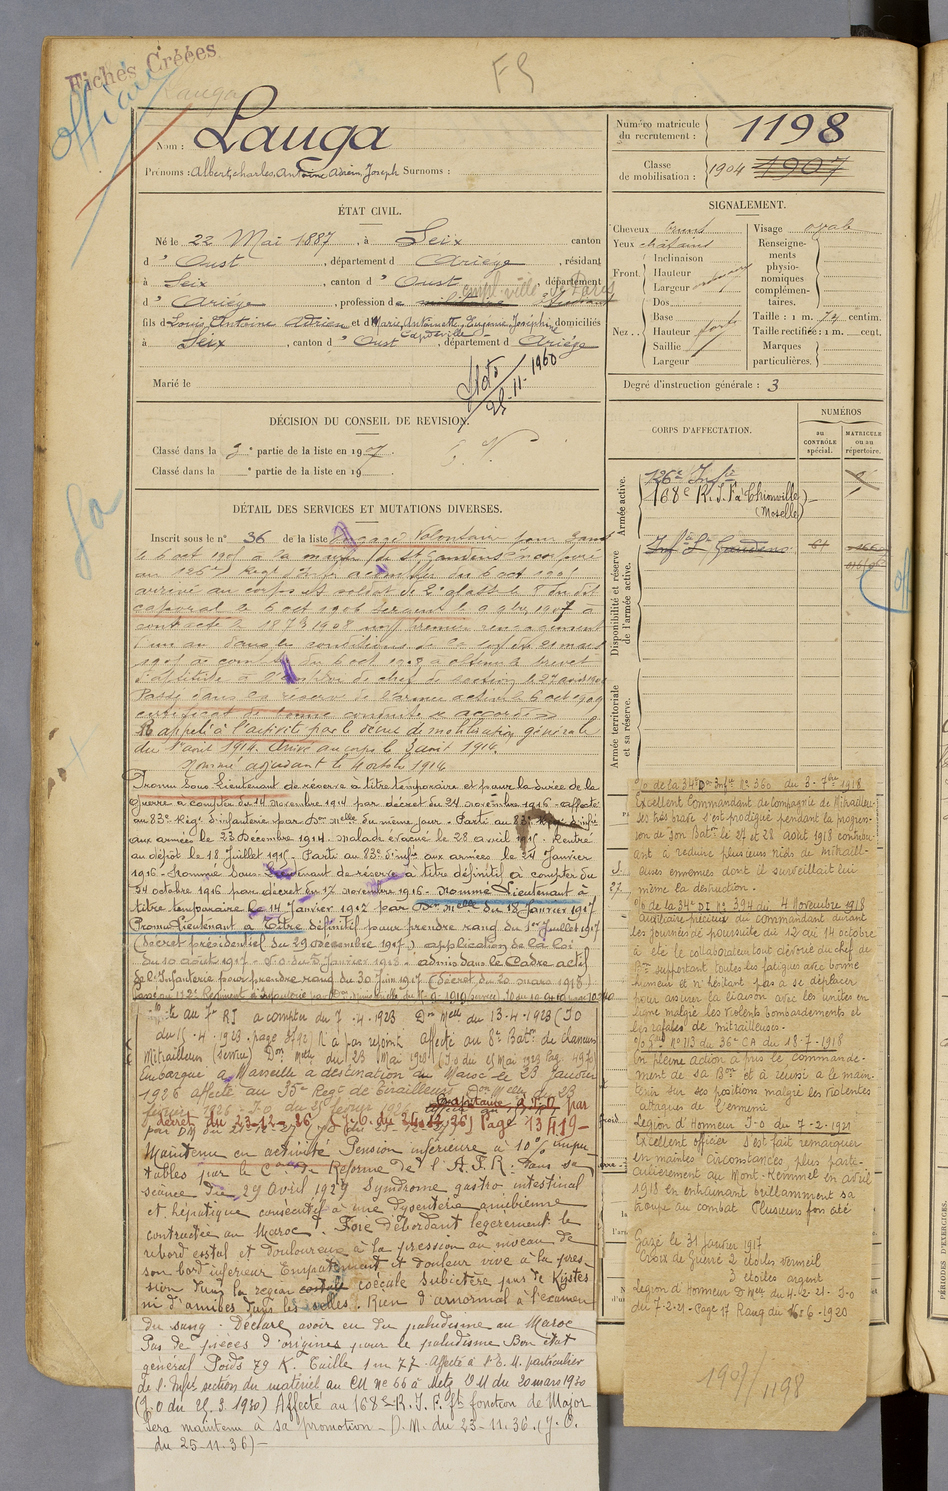 Fichés Créées
officier
FS
Lauga
Nom : Lauga
Prénoms : Albert, charles, Antoine Adrien, Joseph Surnoms :
Numéro matricule du recrutement : 1198
Classe de mobilisation : 1904 1907
ÉTAT CIVIL.
Né le 22 Mai 1887, à Seix canton
d' Oust, département d Ariège, résidant
à Seix, canton d' Oust, département
empl. ville de Paris
d' Ariège, profession de
fils de Louis, Antoine Adrien et d Marie, Antoinette, Eugénie, Joséphine domiciliés
Capdeville
à Seix, canton d' Oust, département d Ariège
Marié le
25-11-1960
SIGNALEMENT.
Cheveux
Yeux châtains
Front. Inclinaison
Hauteur
Largeur
Nez. Dos
Base
Hauteur forte
Saillie
Largeur
Visage ovale
Renseignements physionomiques complémentaires.
Taille : 1 m. 74 centim.
Taille rectifiée : 1 m. cent.
Marques particulières.
Degré d'instruction générale : 3
DÉCISION DU CONSEIL DE REVISION.
Classé dans la 3e partie de la liste en 1907.
Classé dans la e partie de la liste en 19
CORPS D'AFFECTATION.
NUMÉROS
au CONTRÔLE spécial.
MATRICULE ou au répertoire.
Armée active.
126e Inf ie
168e R. I. F à Thionville
(Moselle)
Disponibilité et réserve de l'armée active.
Inf ie St Gaudens 61
Armée territoriale et sa réserve.
DÉTAIL DES SERVICES ET MUTATIONS DIVERSES.
Inscrit sous le n° 36 de la liste Engagé Volontaire pour
le 6 oct 1905 à la mairie de St Gaudens incorporé
au 126e Regt d'Infie à compter du 6 oct 1905
arrivé au corps et soldat de 2e classe le 8 du dit
caporal le 6 oct 1906 Sergent le 1907 a
contracté le 1908 un premier rengagement
d'un an dans les conditions de la loi du 21 mars
1905 à compter du 6 oct 1908 a obtenu le brevet
d'aptitude à l'emploi de chef de section le 27 avril 1909
Passé dans la réserve de l'armée active le 6 oct 1909
certificat de bonne conduite « accordé »
Rappelé à l'activité par le décret de mobilisation générale
du 1er août 1914. Arrivé au corps le 3 août 1914.
Nommé adjudant le 4 octobre 1914
Promu Sous-Lieutenant de réserve à titre temporaire et pour la durée de la
guerre à compter du 14 novembre 1914 par décret du 24 novembre 1916 - affecté
au 83e Régt d'infanterie par Don Melle du même jour. Parti au 83e Régt d'infie
aux armées le 23 Décembre 1914. Malade évacué le 28 avril 1915. Rentré
au dépôt le 18 Juillet 1915. Parti au 83e d'infie aux armées le 24 Janvier
1916. Nommé Sous-Lieutenant de réserve à titre définitif à compter du
24 octobre 1916 par décret du 17 novembre 1916. Nommé Lieutenant à
titre temporaire le 14 Janvier 1917 par Don Melle du 18 Janvier 1917
Promu Lieutenant à Titre définitif pour prendre rang du 1er Juillet 1917
(Décret présidentiel du 29 Décembre 1917) application de la loi
du 10 août 1917 - J.O du 3 Janvier 1918 - admis dans le Cadre actif
de l'Infanterie pour prendre rang du 30 Juin 1917 (décret du 20 mars 1918)
au 7e RI à compter du 7.4.1923 Don Melle du 13.4.1923 (J.O
du 15.4.1923. page 3742) N'a pas rejoint. Affecté au 8e Baton de chasseurs
Mitrailleurs Don Melle du 23 Mai 1923 (J.O du 25 mai 1923 page 4970)
Embarqué à Marseille à destination du Maroc le 23 Janvier
1926 affecté au 35e Regt de Tirailleurs Don Melle du 23
février 1926. J.O. du 25 février 1926
Capitaine, à T.D par
décret du 23-12-26 (J.O. du 24-12-26) Page 13419-
Maintenu en activité Pension inférieure à 10 % impu-
tables par le Con de Réforme de l'A.F.R. dans sa
séance du 29 Avril 1927 Syndrome gastro intestinal
et hépatique consécutif à une dysenterie amibienne
contractée au Maroc. Foie débordant légèrement le
rebord costal et douloureux à la pression au niveau de
son bord inférieur Empatement et douleur vive à la pres-
sion dans la région costale coecale Subictère pas de Kystes
ni d'amibes dans les selles. Rien d'anormal à l'examen
du sang. Déclare avoir eu du paludisme au Maroc
Pas de pièces d'origines pour le paludisme Bon état
général Poids 79 K. Taille 1m 77. Affecté à l'E.M. particulier
de l'Infie section du matériel au CM n° 66 à Metz DM du 20 mars 1930
(J.O du 25.3.1930) Affecté au 168e R.I.F. pr fonction de Major
Sera maintenu à sa promotion - D.M. du 23-11.36. (J.O.
du 25-11.36) -
O/ de la 34e Don Infie N° 360 du 3-7bre 1918
Excellent Commandant de Compagnie de Mitrailleu-
ses très brave s'est prodigué pendant la progres-
sion de son Baton le 27 et 28 août 1918 contribu-
ant à réduire plusieurs nids de mitraill-
euses ennemies dont il surveillait lui
même la destruction.
O/ de la 34e DI N° 394 du 4 Novembre 1918
Auxiliaire précieux du commandant durant
les journées de poursuite du 12 au 14 octobre
a été le collaborateur tout dévoué du chef de
Bon supportant toutes les fatigues avec bonne
humeur et n'hésitant pas à se déplacer
pour assurer la liaison avec les unités en
ligne malgré les violents bombardements et
les rafales de mitrailleuses.
O/ N° 113 du 36e CA du 18-7-1918
En pleine action a pris le commande-
ment de sa Bon et a réussi à le main-
tenir sur ses positions malgré les violentes
attaques de l'ennemi
Légion d'Honneur J.O du 7-2-1921
Excellent officier s'est fait remarquer
en maintes circonstances, plus parti-
culièrement au Mont-Kemmel en avril
1918 en entrainant brillamment sa
troupe au combat Plusieurs fois cité
Gazé le 31 Janvier 1917
Croix de Guerre 2 étoiles vermeil
3 étoiles argent
Légion d'Honneur D Melle du 4-2-21. J.O
du 7-2-21. Page 17 Rang du 16-6-1920
1907/1198
PÉRIODES D'EXERCICES